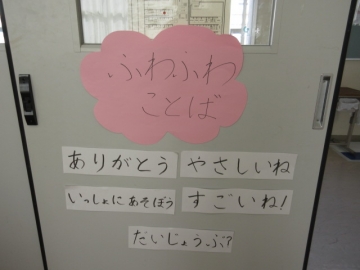 ふわふわ
ことば
ありがとう
やさしいね
いっしょにあそぼう
すごいね!
だいじょうぶ?